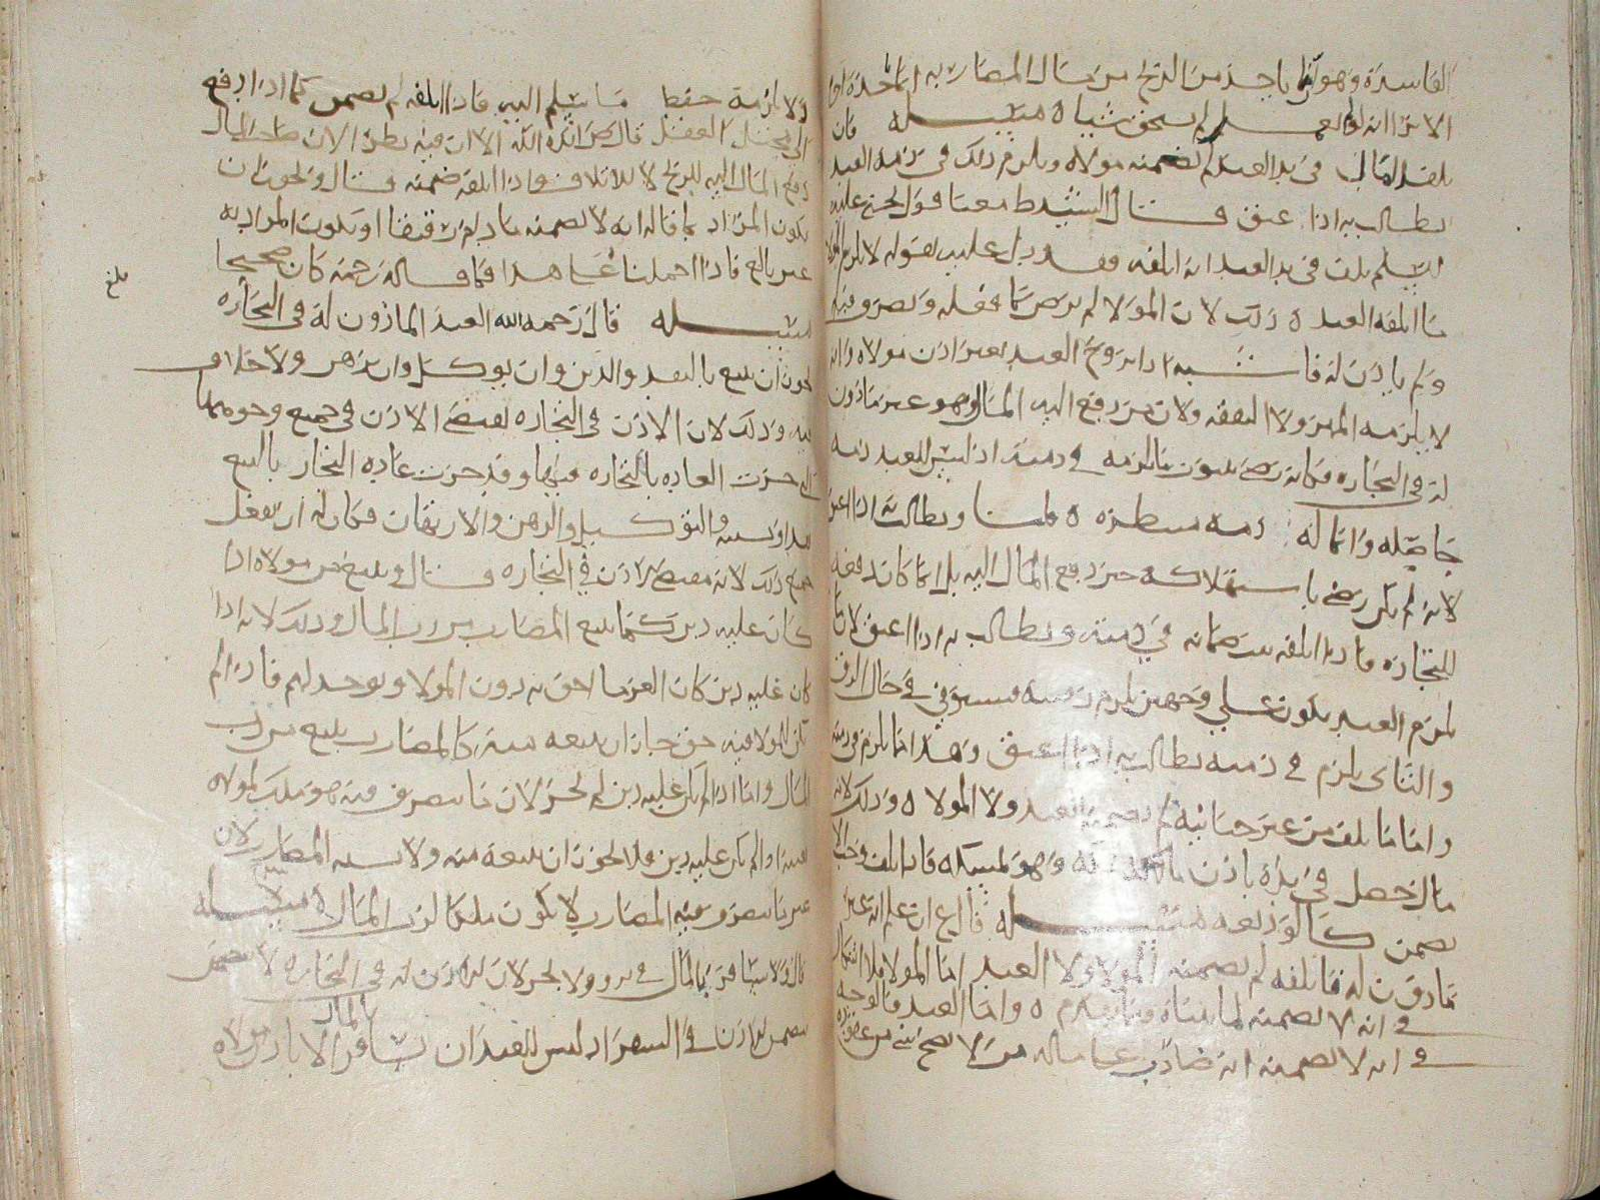 الفاسدة وهو انما ياخذ من الربح من مال المضاربه انما ياخذه
الا ترا انه لو لم يعمل لم يستحق شيا ه مسله فان
تلف المال في يد العبد لم يضمنه مولاه ويلزم ذلك في ذمه العبد
يطالب به اذا عتق قال السيد ط معنا قول يحيى عليه
السلم تلف في يد العبد انه اتلفه وقد دل عليه بقوله لا يلزم المولا
ما اتلفه العبد ه وذلك لان المولا لم يرض بما فعله وتصرف فيه
ولم ياذن له فاشبه اذا تزوج العبد بغير اذن مولاه وانه
لا يلزمه المهر ولا النفقه ولان من دفع اليه المال وهو غير ماذون
له في التجاره فكانه رضي بكون ما يلزمه في ذمته اذ ليس للعبد ذمه
حاصله وانما له ذمه منتظره ه قلنا ويطالب به اذا اعتق
لانه لم يكن رضي باستهلاكه حين دفع المال اليه بل انما كان دفعه
للتجاره فاذا اتلفه ثبت ضمانه في ذمته ويطالب به اذا اعتق لان ما
يلزم العبد يكون على وجهين يلزم رقبته فيستوفى في حال الرق
والثاني يلزم في ذمته يطالب به اذا اعتق وهذا انما يلزم في ذمته
واما ما تلف من غير جنايه لم يضمنه العبد ولا المولا ه وذلك لانه
مال حصل في يده باذن مالكه وهو لم يتلفه فاذا تلف وجب الا
يضمن كالوديعه مسله قال ع ان علم انه غير
ماذون له فاتلفه لم يضمنه المولا ولا العبد اما المولا فلا اشكال
في انه لا يضمنه لما بيناه فيما تقدم ه واما العبد فالوجه
في انه لا يضمنه انه ضارب على ماله من لا يصح
ولا يلزمه حفظ ما يسلم اليه فاذا اتلفه لم يضمن كما اذا دفع
الى مختل العقل قال ض ايده الله الا ان فيه نظرا لان صاحب المال
دفع المال اليه للربح لا للاتلاف فاذا اتلفه ضمنه قال ويجوز ان
يكون المراد بما قاله انه لا يضمنه ما دام رقيقا او يكون المراد به
غير بالغ فاذا احملنا على هذا فما قاله رحمه كان صحيحا
بلغ
مسله قال رحمه الله العبد الماذون له في التجاره
يجوز ان يبيع بالنقد والدين وان يوكل وان يرهن ولا خلاف
فيه وذلك لان الاذن في التجاره يقتضي الاذن في جميع وجوهها
التي جرت العاده بالتجاره فيها وقد جرت عاده التجار بالبيع
نقدا ونسيه والتوكيل والرهن والارتهان فكان له ان يفعل
جميع ذلك لانه مقتضى الاذن في التجاره قال ويبيع من مولاه اذا
كان عليه دين كما يبيع المضارب من رب المال وذلك لانه اذا
كان عليه دين كان الغرما احق به دون المولا ويوخذ لهم فاذا لم
يكن للمولا فيه حق جاز ان يبيعه منه كالمضارب يبيع من رب
المال واما اذا لم يكن عليه دين لم يجز لان ما يتصرف فيه هو ملك لمولاه
اذا لم يكن عليه دين فلا يجوز ان يبيعه منه ولا يشبه المضارب لان
غير ما يتصرف فيه المضارب لا يكون ملكا لرب المال ه مسله
قال ولا يسافر بالمال في بر ولا بحر لان الاذن له في التجاره لا يتضمن
بالمال
يتضمن الاذن في السفر اذ ليس للعبد ان يسافر الا باذن مولاه